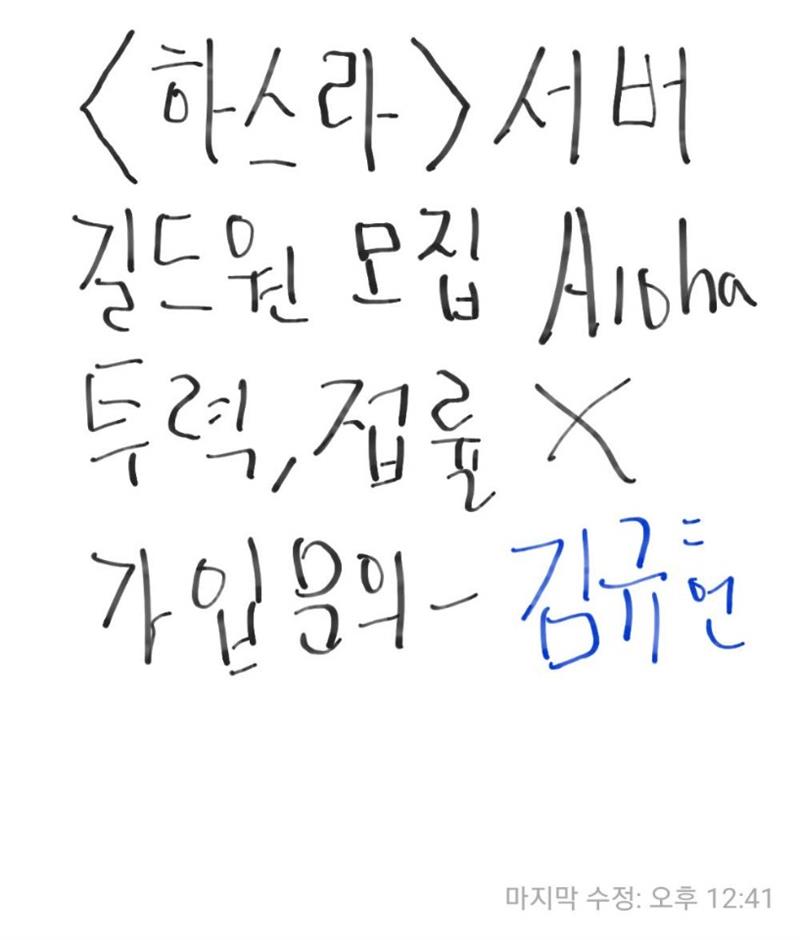 <하스라> 서버
길드원 모집 Aloha
투력, 접률 X
가입문의 - 김규헌
마지막 수정: 오후 12:41